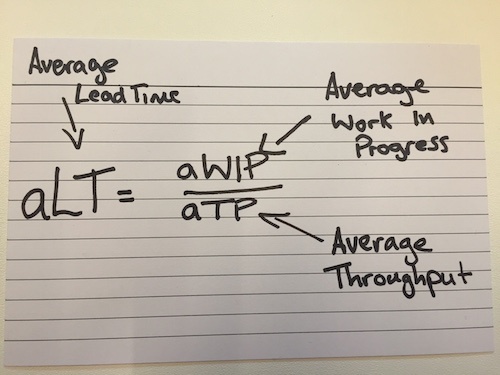 Average
Lead Time
Average
Work In
Progress
aLT = aWIP
aTP
Average
Throughput